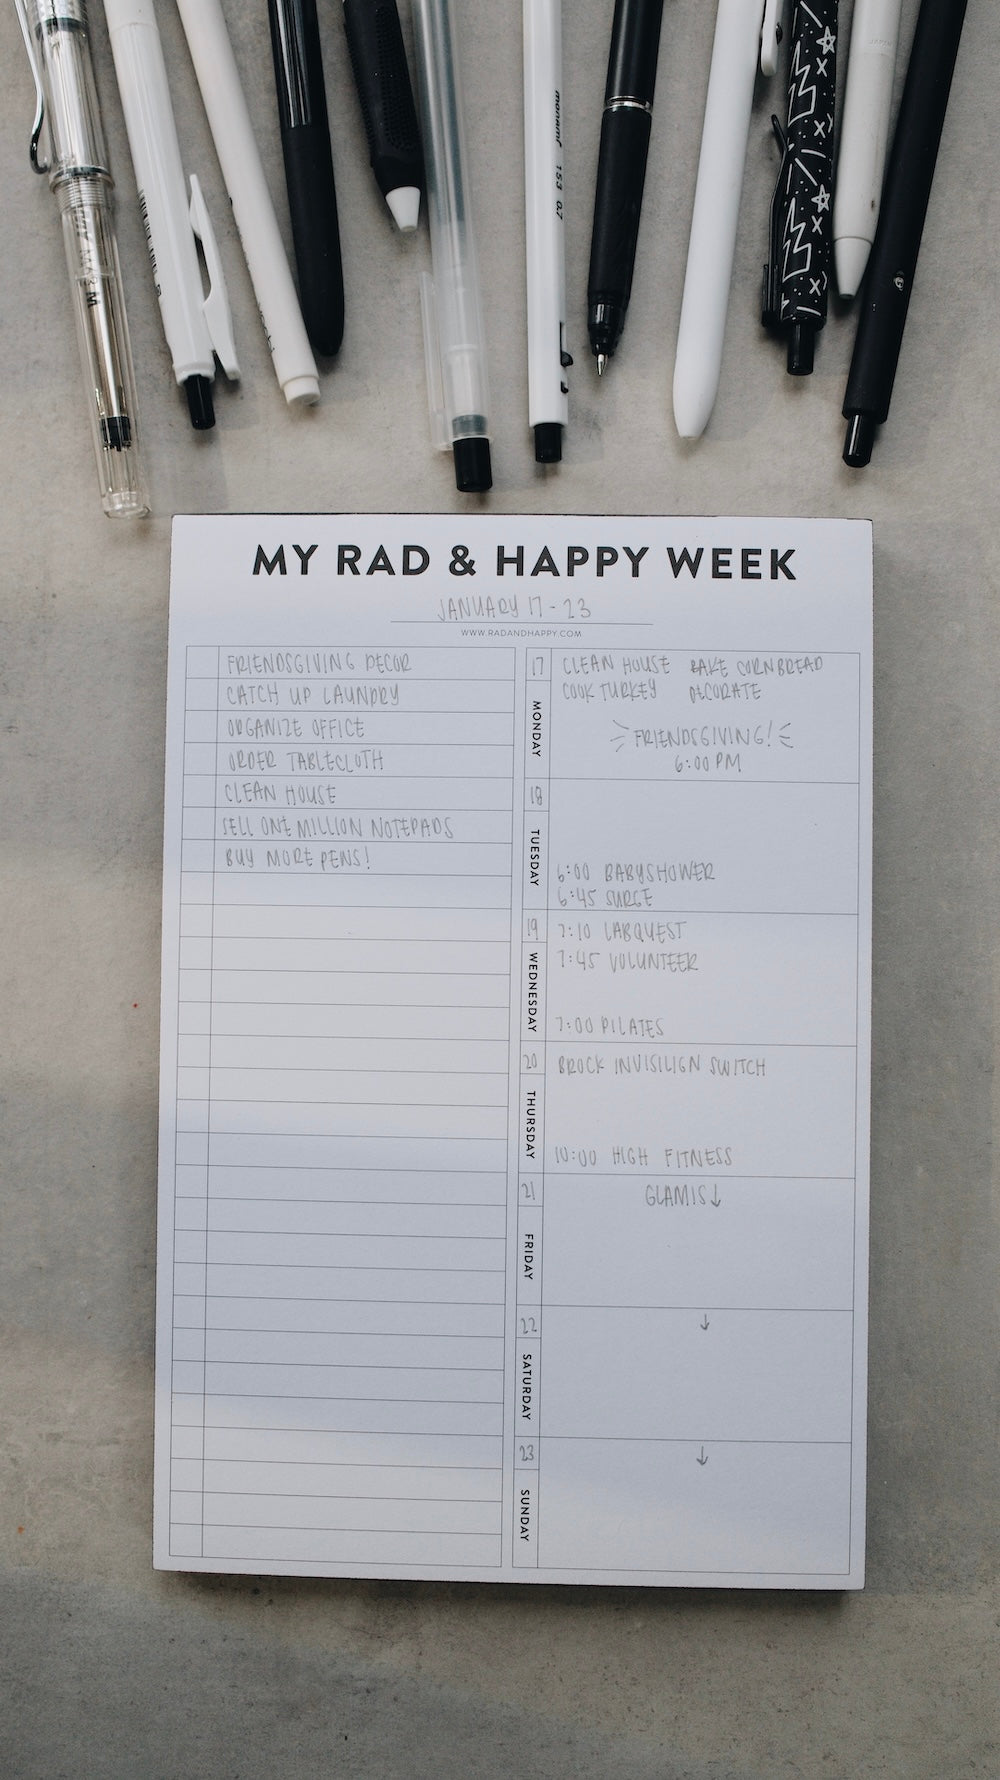 monami 153 0.7
MY RAD & HAPPY WEEK
JANUARY 17 - 23
WWW.RADANDHAPPY.COM
FRIENDSGIVING DECOR
CATCH UP LAUNDRY
ORGANIZE OFFICE
ORDER TABLECLOTH
CLEAN HOUSE
SELL ONE MILLION NOTEPADS
BUY MORE PENS!
17 MONDAY
CLEAN HOUSE BAKE CORNBREAD
COOK TURKEY DECORATE
FRIENDSGIVING!
6:00 PM
18 TUESDAY
6:00 BABYSHOWER
6:45 SURGE
19 WEDNESDAY
7:10 LABQUEST
7:45 VOLUNTEER
7:00 PILATES
20 THURSDAY
BROCK INVISILIGN SWITCH
10:00 HIGH FITNESS
21 FRIDAY
GLAMIS↓
22 SATURDAY
↓
23 SUNDAY
↓